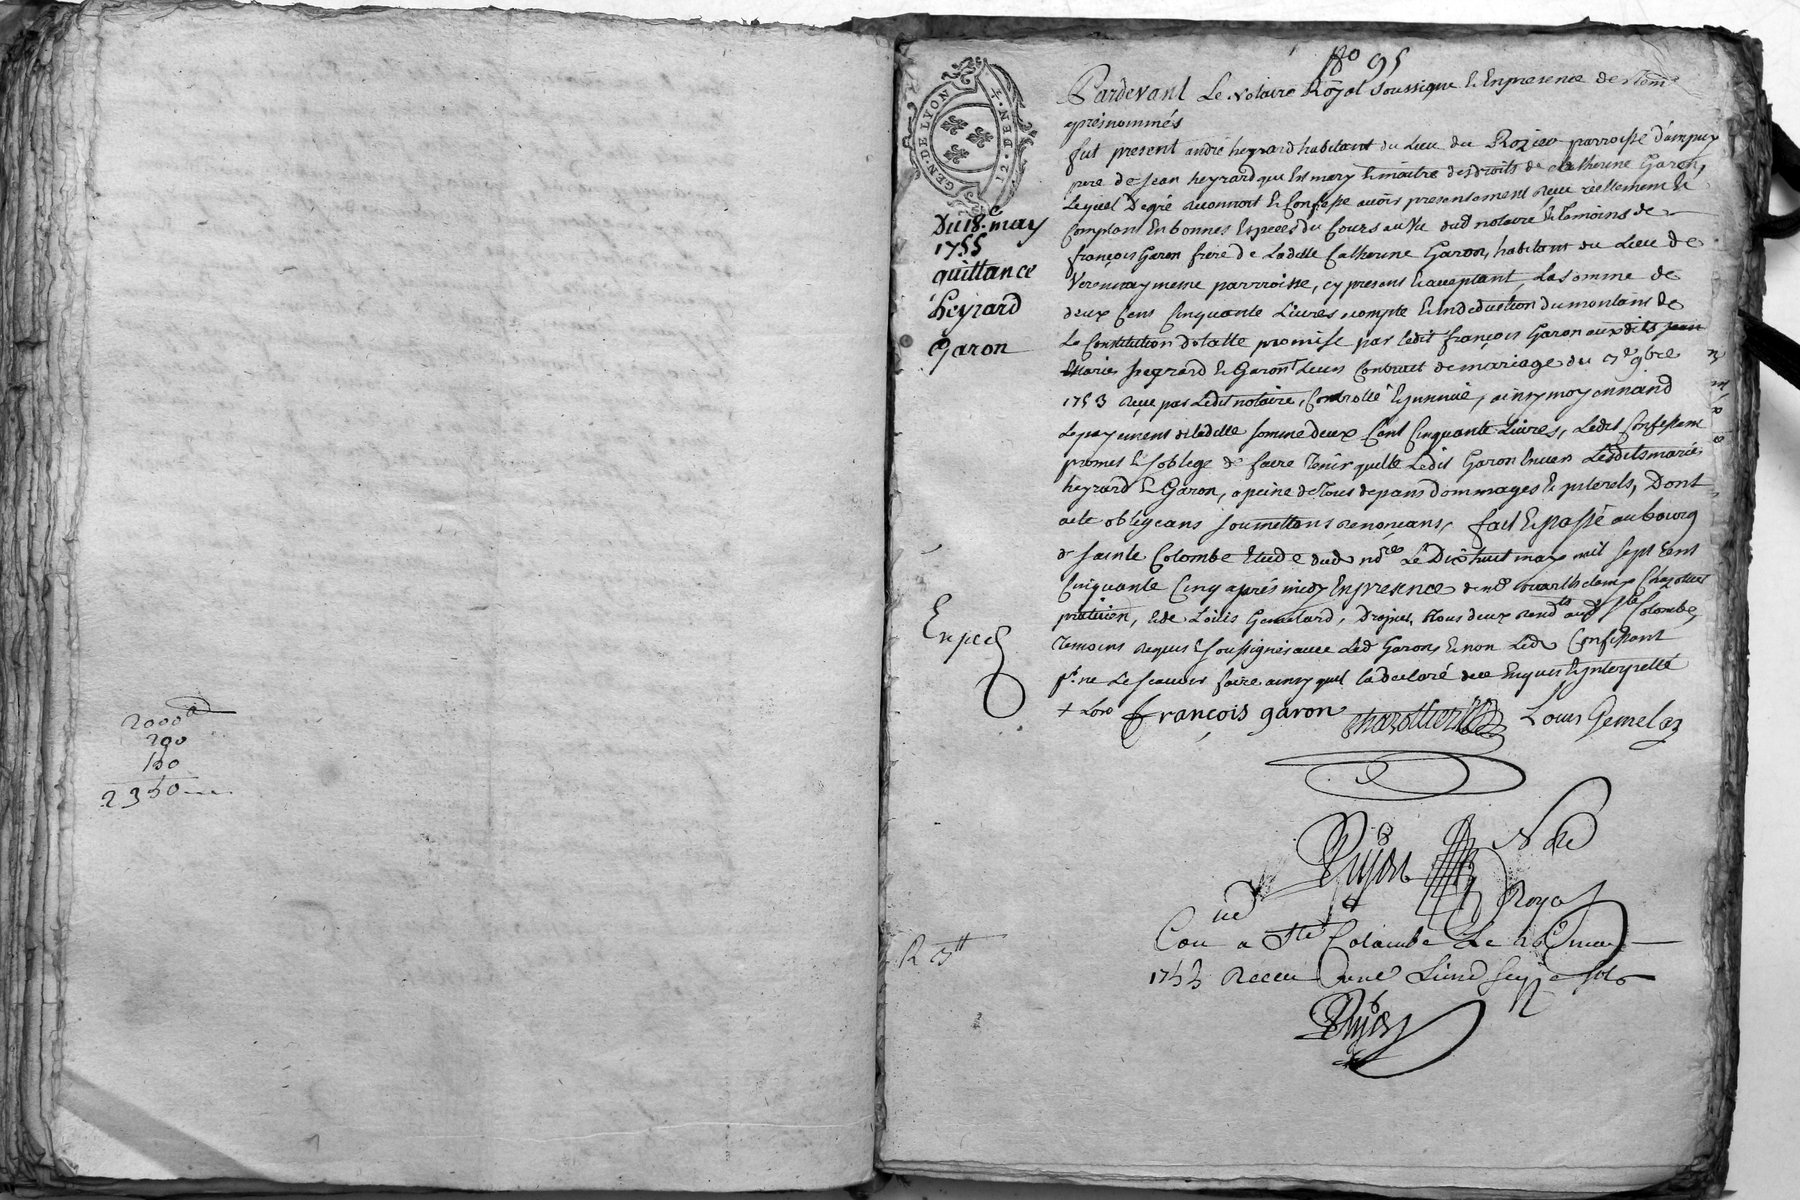 2000
200
150
2350
No 95
GEN. DE LYON
12. DEN.
Du 18e. may
1755
quittance
heyrard
Garon
Expeé
R 3tt
Pardevant Le Notaire Royal soussigne & En presence de
apresnommés
fut present andré heyrard habitant du Lieu du Rozier parroisse d'ampuy
pere de Jean heyrard qui Est mary & maitre des droits de Catherine Garon,
Lequel De gré reconnoit & Confesse avoir presentement Receu réellement &
Comptant En bonnes Especes du Cours au vu dud notaire & Temoins de
françois Garon frere de Laditte Catherine Garon, habitant du Lieu de
Verenay meme parroisse, cy present & acceptant, La somme de
deux Cens Cinquante Livres a compte & En deduction du montant de
La Constitution dotalle promise par ledit françois Garon aux dits
Mariés heyrard & Garon Leur Contract de mariage du 9bre
1753 Receu par Ledit notaire, Controllé & jnsinué, ainsy moyennand
Le payement de laditte somme deux Cent Cinquante Livres, Ledit Confessant
promet & s'oblige de faire Tenir quitte Ledit Garon Envers Lesdits mariés
heyrard & Garon, a peine de Tous depans Dommages & jnterets, Dont
acte obligeans soumettans renonceans, fait & passé au bourg
de sainte Colombe Etude dud nore Le Dix huit may mil sept cent
Cinquante Cinq aprés midy En presence de me Barthelemy Chazottier
praticien, & de Loüis Gemelard, Tous deux aud Ste Colombe,
Temoins Requis & soussignés avec Led Garon, & non Led Confessant
pr. ne Le scavoir faire ainsy quil la declaré de ce Enquis & jnterpellé
françois garon Chazottier Louis Gemelar
Royal
Con a Ste Colombe Le may
1755 Receu une Livre seize sols